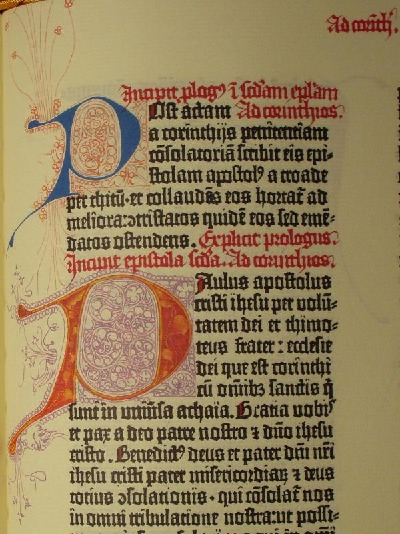 Ad corinth.
Incipit plogꝰ ī scḋam eplam
Ad corinthios.
Post actam
a corinthijs penitentiam
cōsolatoriā scribit eis epi-
stolam apostolꝰ a troade
per thitū· et collaudās eos hortat̄ ad
meliora: ↄtristatos quidē eos sed emē-
datos ostendens. Explicit prologus.
Incipit epistola scḋa. Ad corinthios.
Paulus apostolus
cristi ihesu per volū-
tatem dei et thimo-
teus frater: ecclesie
dei que est corinthi
cū omībꝫ sanctis q̄
sunt in univ̄sa achaia. Gratia vobis
et pax a deo patre nostro ⁊ dn̄o ihesu
cristo. Benedictꝰ deus et pater dn̄i nr̄i
ihesu cristi pater misericordiaꝝ ⁊ deus
totius ↄsolationis· qui cōsolat̄ nos
in omni tribulatione nostra: ut possi-